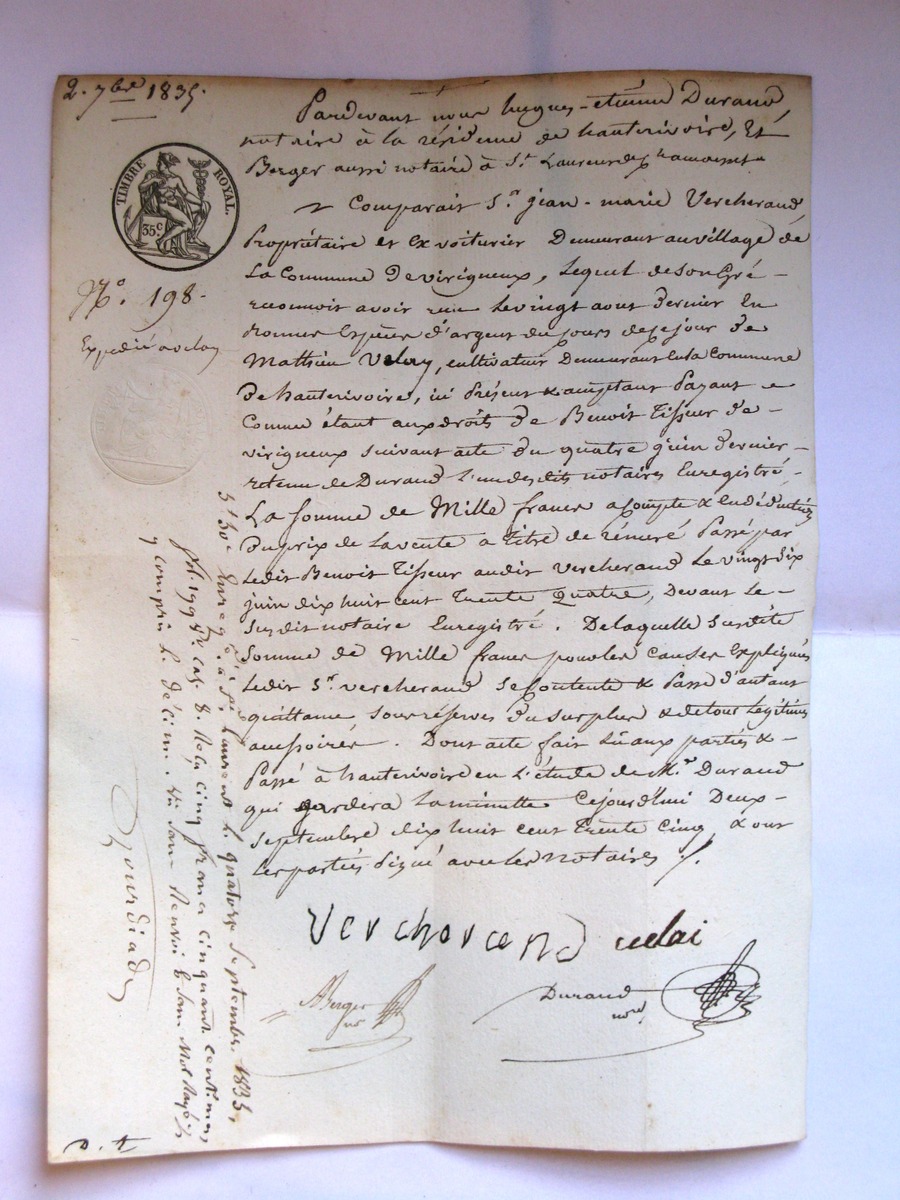 2. 7bre 1835.
TIMBRE ROYAL.
35c
No. 198.
Expédié a velay
Pardevant nous hugues-étienne Durand,
notaire à la résidence de hauterivoire, Et
Berger aussi notaire à St. Laurent de chamousset
Comparait Sr. jean-marie Vercherand
Propriétaire et Exvoiturier Demeurant au village de
La Commune De virigneux, Lequel de son Gré
reconnoit avoir reçu Le vingt aout dernier En
bonnes Espèces d'argent du jours de ce jour de
Mathieu Velay, cultivateur Demeurant En la Commune
De hauterivoire, ici Présent & acceptant Payant
Comme étant aux droits de Benoit Tisseur de
virigneux suivant acte du quatre juin dernier
retenu de Durand L'un desdits notaires Enregistré,
La somme de Mille francs acompte & En déduction
Du prix de La vente a titre de rémeré Passé par
Ledit Benoit Tisseur audit Vercherand Le vingt dix
juin dix huit cent Trente Quatre, Devant Le
Susdit notaire Enregistré. De laquelle susdite
Somme de Mille francs pour les causes Expliquées
Ledit Sr. vercherand se Contente & Passe d'autant
quittance sous réserves du surplus & de tous Légitimes
accessoires. Dont acte fait Lû aux parties &
Passé à hauterivoire en L'étude de Me. Durand
qui gardera La minutte Cejourd'hui Deux
Septembre dix huit cent trente cinq & ont
Les parties Signé avec Les notaires
Verchorand velai
Berger nre
Durand
nore
Enreg. à St. Laurent le quatorze Septembre 1835,
fol. 199 cas. 8. Reçu cinq francs cinquante centimes
y compris le décime.
D. t